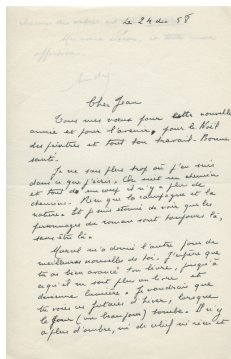 Le 24 déc 58
Cher Jean
Tous mes vœux pour cette nouvelle
année et pour l'avenir, pour le Noël
des peintres et tout ton travail. Bonne
santé.
Je ne sais plus trop où j'en suis
dans ce que j'écris. On suit un chemin
et tout d'un coup il n'y a plus de
chemin. Rien que la campagne et la
nature. Et je suis étonné de voir que les
personnages du roman sont toujours là,
sans être là.
Marcel m'a donné l'autre jour de
meilleures nouvelles de toi. J'espère que
tu as bien avancé ton livre, jusqu'à
ce qu'il ne soit plus un livre et
devienne lumière. Je voudrais que
tu voies ces futaies d'hiver, lorsque
le jour (un beau jour) tombe. Il n'y
a plus d'ombre, ni de relief ni récit et